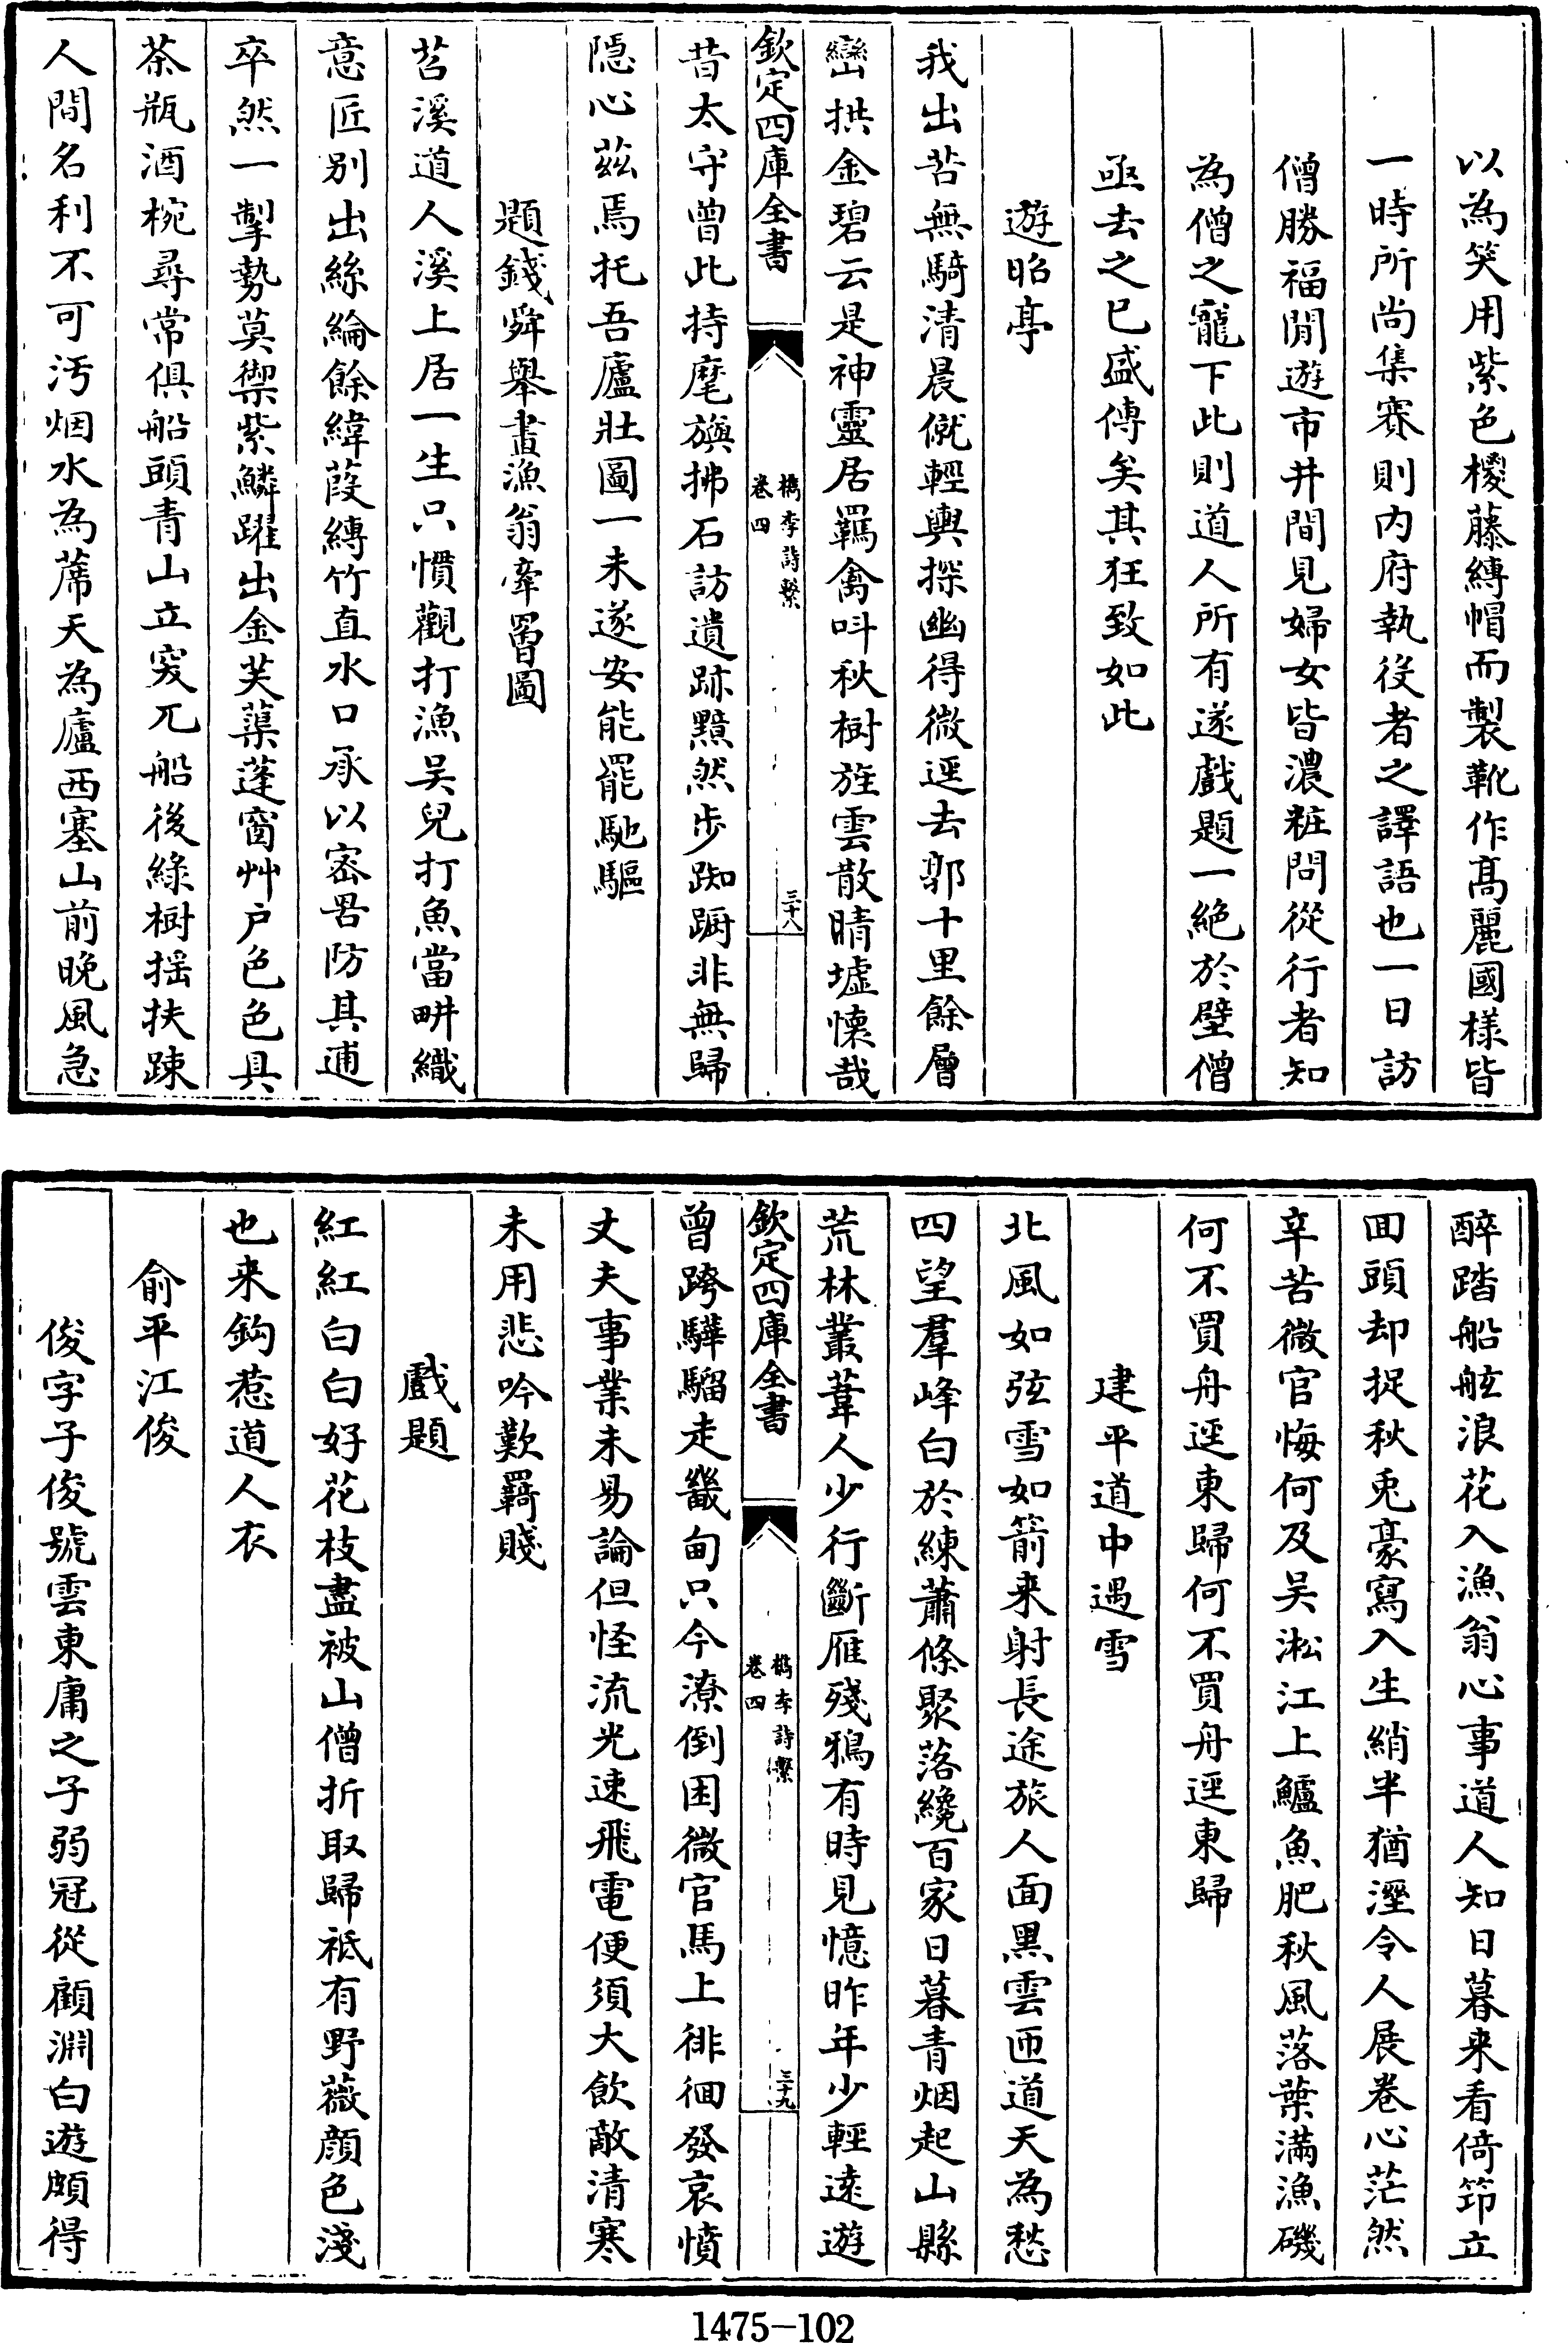 以為笑用紫色椶藤縛帽而製靴作髙麗國様皆
一時所尚集賽則内府執役者之譯語也一日訪
僧勝福閒遊市井間見婦女皆濃粧問從行者知
為僧之寵下此則道人所有遂戲題一絶於壁僧
亟去之已盛傳矣其狂致如此
遊昭亭
我出苦無騎清晨僦輕輿探幽得微逕去郭十里餘層
巒拱金碧云是神靈居羈禽呌秋樹旌雲散晴墟懷哉
欽定四庫全書
檇李詩繫
卷四
三十八
昔太守曾此持麾旟拂石訪遺跡黯然步踟蹰非無歸
隱心兹焉托吾廬壯圖一未遂安能罷馳驅
題錢舜舉畫漁翁牽罾圖
苕溪道人溪上居一生只慣觀打漁吴兒打魚當畊織
意匠别出絲綸餘緯葭縛竹直水口承以宻罟防其逋
卒然一掣勢莫禦紫鱗躍出金芙蕖蓬窗艸户色色具
茶瓶酒椀尋常俱船頭青山立突兀船後緑樹揺扶踈
人間名利不可汚烟水為蓆天為廬西塞山前晚風急
醉踏船舷浪花入漁翁心事道人知日暮来看倚笻立
回頭却捉秋兎豪寫入生綃半猶溼令人展卷心茫然
辛苦微官悔何及吴淞江上鱸魚肥秋風落葉滿漁磯
何不買舟逕東歸何不買舟逕東歸
建平道中遇雪
北風如弦雪如箭来射長途旅人面黑雲匝道天為愁
四望羣峰白於練蕭條聚落纔百家日暮青烟起山縣
荒林叢葦人少行斷雁殘鴉有時見憶昨年少輕逺遊
欽定四庫全書
檇李詩繫
卷四
三十九
曾跨驊騮走畿甸只今潦倒困微官馬上徘徊發哀憤
丈夫事業未易論但怪流光速飛電便須大飲敵清寒
未用悲吟歎羇賤
戲題
紅紅白白好花枝盡被山僧折取歸祗有野薇顔色淺
也来鈎惹道人衣
俞平江俊
俊字子俊號雲東庸之子弱冠從顧淵白遊頗得
1475-102